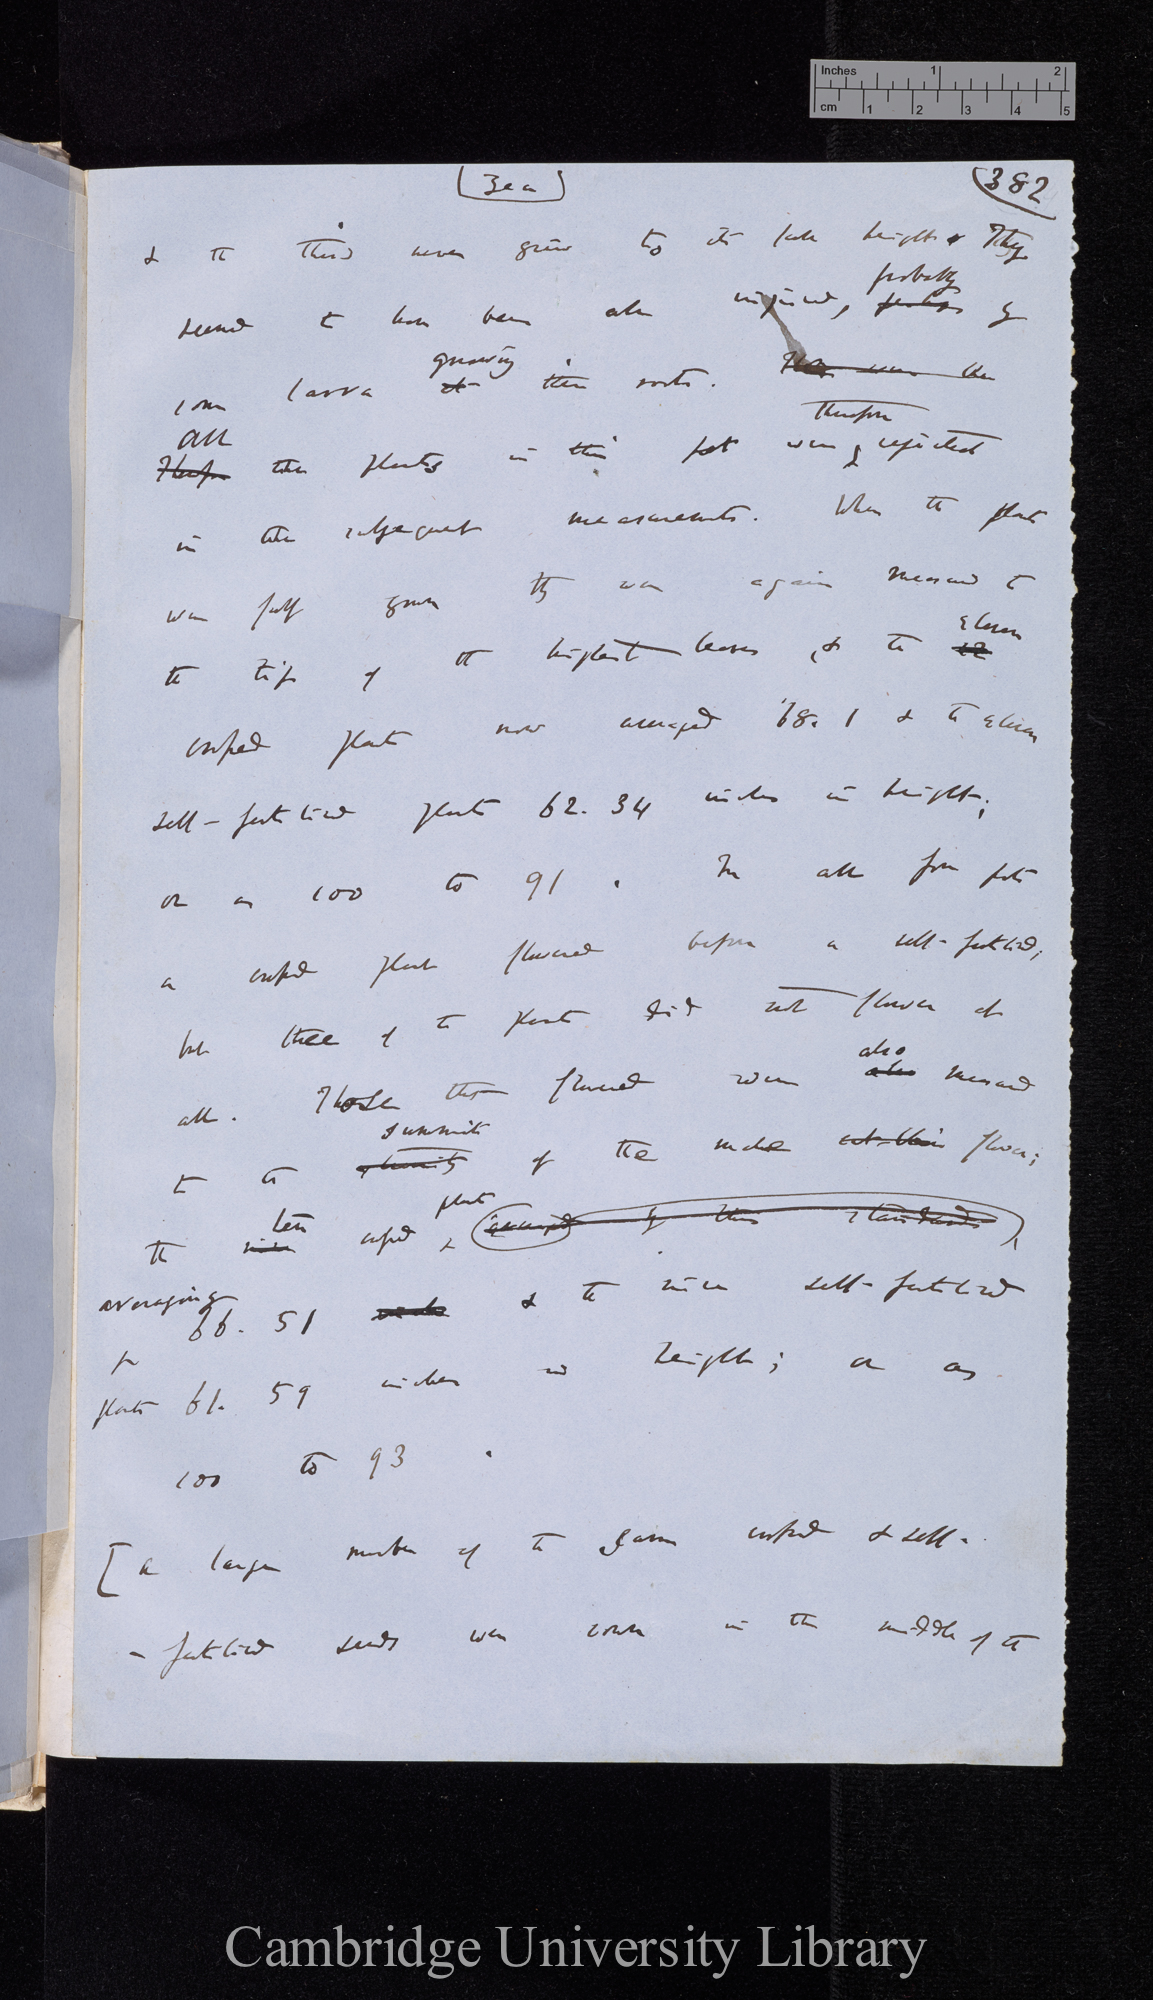 Inches 1 2
cm 1 2 3 4 5
(Zea) (382
& the third never grew to its full height. They
probably
seemed to have been all injured, perhaps by
gnawing
some larva at their roots. They were all
therefore
All
the plants in this pot were rejected
in the subsequent measurements. When the plants
were fully grown they were again measured to
eleven
the tips of the highest leaves, & the 12
crossed plants now averaged 68.1 & the eleven
self-fertilised plants 62.34 inches in height;
or as 100 to 91. In all four pots
a crossed plant flowered before a self-fertilised;
but three of the plants did not flower at
also
all. Those that flowered were also measured
summits
to the of the male flowers;
ten plants
the nine crossed by their standards),
averaging
66.51 inches & the nine self-fertilised
plants 61.59 inches in height; or as
100 to 93.
[A large number of the same crossed & self-
-fertilised seeds were sown in the middle of the
Cambridge University Library